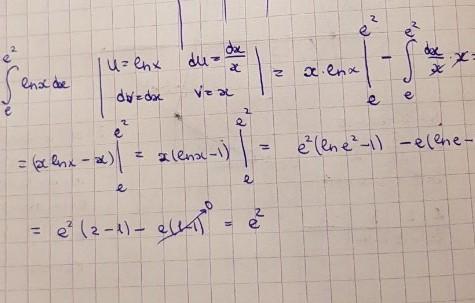 ∫_e^{e²} lnx dx | u=lnx du=dx/x dv=dx v=x | = x·lnx |_e^{e²} - ∫_e^{e²} dx/x · x =
= (x lnx - x) |_e^{e²} = x(lnx-1) |_e^{e²} = e²(lne²-1) - e(lne-
= e²(2-1) - e(1-1) 0 = e²